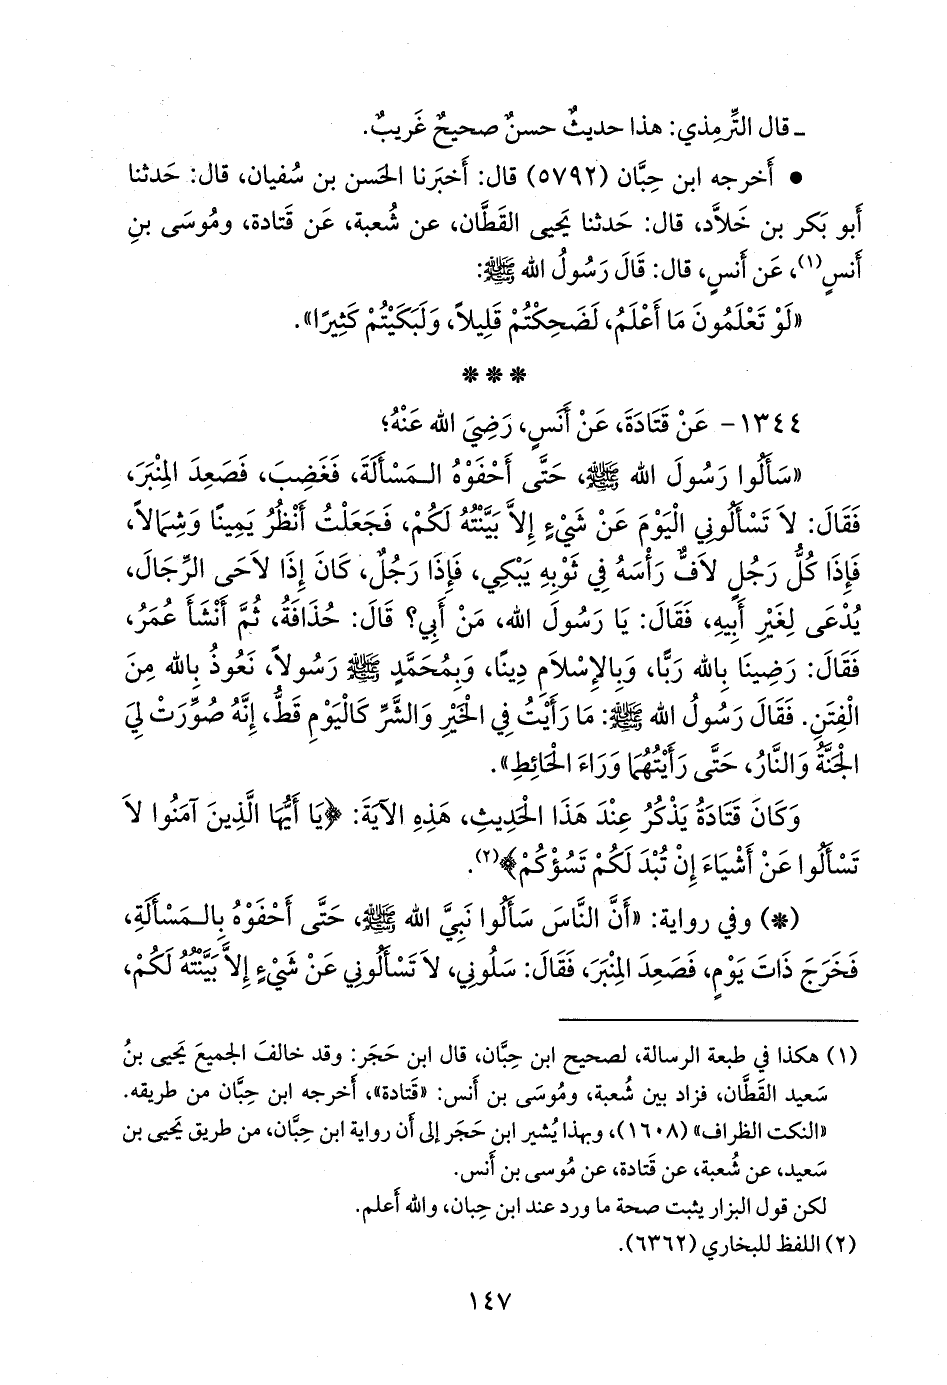 ـ قال التِّرمِذي: هذا حديثٌ حسنٌ صحيحٌ غَريبٌ.
● أَخرجه ابن حِبَّان (٥٧٩٢) قال: أَخبَرنا الحَسن بن سُفيان، قال: حَدثنا
أَبو بَكر بن خَلاَّد، قال: حَدثنا يَحيى القَطَّان، عن شُعبة، عَن قَتادة، ومُوسَى بنِ
أَنسٍ(١)، عَن أَنسٍ، قال: قَالَ رَسُولُ الله ﷺ:
«لَوْ تَعْلَمُونَ مَا أَعْلَمُ، لَضَحِكْتُمْ قَلِيلاً، وَلَبَكَيْتُمْ كَثِيرًا».
* * *
١٣٤٤- عَنْ قَتَادَةَ، عَنْ أَنَسٍ، رَضِيَ الله عَنْهُ؛
«سَأَلُوا رَسُولَ الله ﷺ، حَتَّى أَحْفَوْهُ الـمَسْأَلَةَ، فَغَضِبَ، فَصَعِدَ المِنْبَرَ،
فَقَالَ: لاَ تَسْأَلُونِي الْيَوْمَ عَنْ شَيْءٍ إِلاَّ بَيَّنْتُهُ لَكُمْ، فَجَعَلْتُ أَنْظُرُ يَمِينًا وَشِمَالاً،
فَإِذَا كُلُّ رَجُلٍ لاَفٌّ رَأْسَهُ فِي ثَوْبِهِ يَبْكِي، فَإِذَا رَجُلٌ، كَانَ إِذَا لاَحَى الرِّجَالَ،
يُدْعَى لِغَيْرِ أَبِيهِ، فَقَالَ: يَا رَسُولَ الله، مَنْ أَبِي؟ قَالَ: حُذَافَةُ، ثُمَّ أَنْشَأَ عُمَرُ،
فَقَالَ: رَضِينَا بِالله رَبًّا، وَبِالإِسْلاَمِ دِينًا، وَبِمُحَمَّدٍ ﷺ رَسُولاً، نَعُوذُ بِالله مِنَ
الْفِتَنِ. فَقَالَ رَسُولُ الله ﷺ: مَا رَأَيْتُ فِي الْخَيْرِ وَالشَّرِّ كَالْيَوْمِ قَطُّ، إِنَّهُ صُوِّرَتْ لِيَ
الْجَنَّةُ وَالنَّارُ، حَتَّى رَأَيْتُهُمَا وَرَاءَ الْحَائِطِ».
وَكَانَ قَتَادَةُ يَذْكُرُ عِنْدَ هَذَا الْحَدِيثِ، هَذِهِ الآيَةَ: ﴿يَا أَيُّهَا الَّذِينَ آمَنُوا لاَ
تَسْأَلُوا عَنْ أَشْيَاءَ إِنْ تُبْدَ لَكُمْ تَسُؤْكُمْ﴾(٢).
(*) وفي رواية: «أَنَّ النَّاسَ سَأَلُوا نَبِيَّ الله ﷺ، حَتَّى أَحْفَوْهُ بِالـمَسْأَلَةِ،
فَخَرَجَ ذَاتَ يَوْمٍ، فَصَعِدَ المِنْبَرَ، فَقَالَ: سَلُونِي، لاَ تَسْأَلُونِي عَنْ شَيْءٍ إِلاَّ بَيَّنْتُهُ لَكُمْ،
(١) هكذا في طبعة الرسالة، لصحيح ابن حِبَّان، قال ابن حَجَر: وقد خالفَ الجميعَ يَحيى بنُ
سَعيد القَطَّان، فزاد بين شُعبة، ومُوسَى بن أَنس: «قَتادة»، أَخرجه ابن حِبَّان من طريقه.
«النكت الظراف» (١٦٠٨)، وبهذا يُشير ابن حَجَر إلى أَن رواية ابن حِبَّان، من طريق يَحيى بن
سَعيد، عن شُعبة، عن قَتادة، عن مُوسى بن أَنس.
لكن قول البزار يثبت صحة ما ورد عند ابن حِبان، والله أَعلم.
(٢) اللفظ للبخاري (٦٣٦٢).
١٤٧